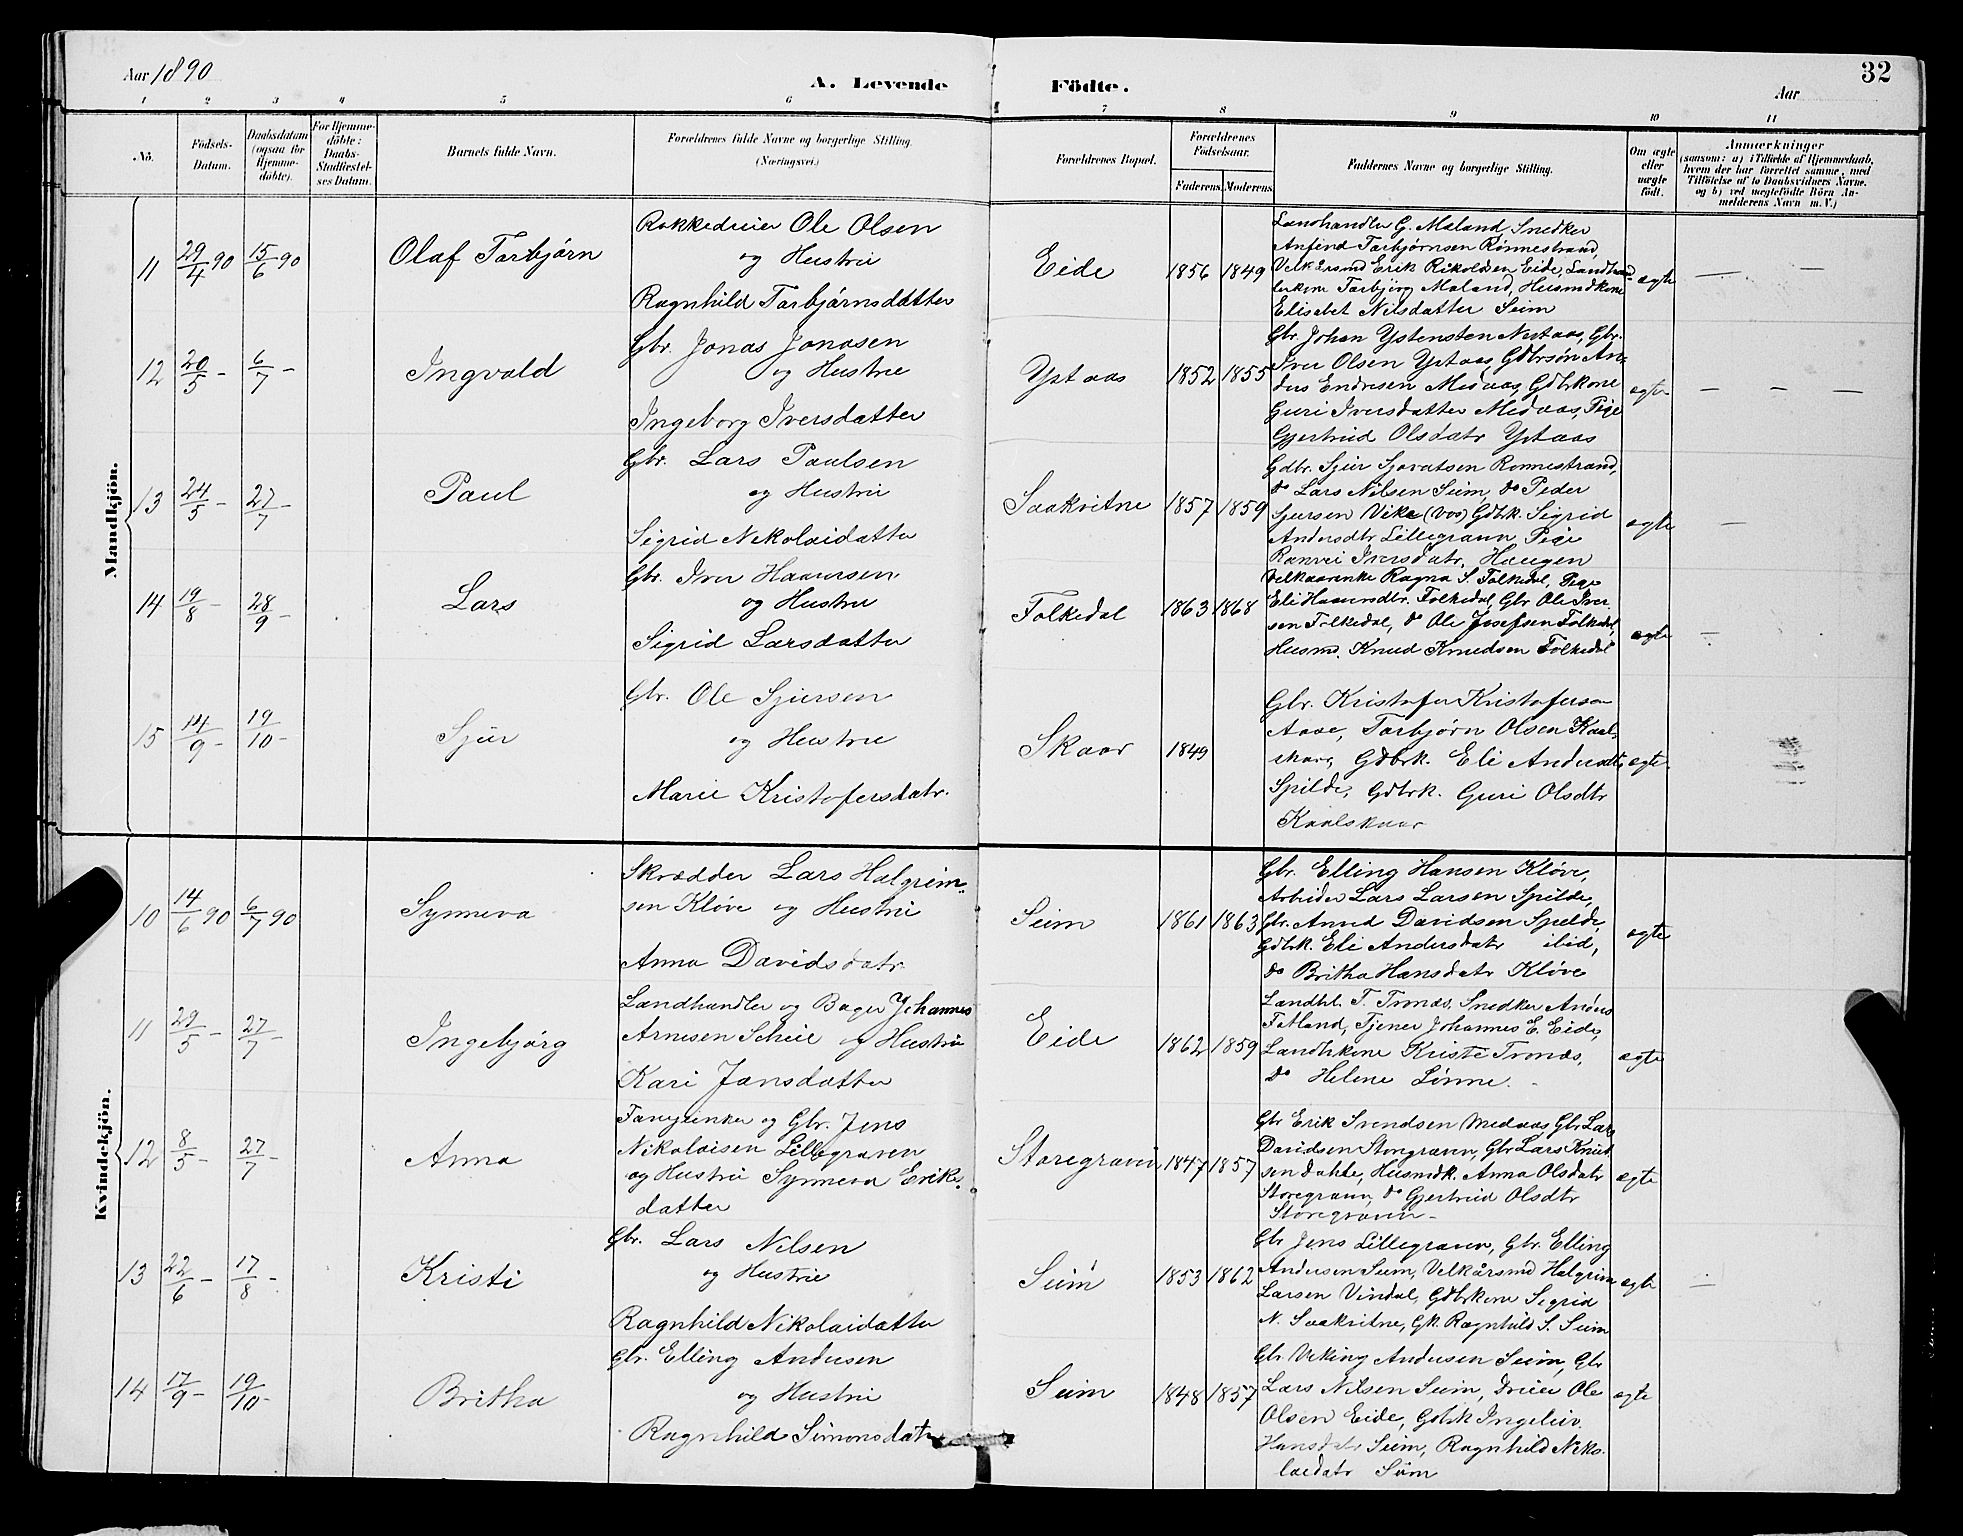 Aar 1890
A. Levende Födte.
Aar
32
1 2 3 4 5 6 7 8 9 10 11
Nö.
Födsels-Datum.
Daabsdatum (ogsaa for Hjemme-döbte).
For Hjemme-döbte: Daabs-Stadfæstel-ses Datum.
Barnets fulde Navn.
Forældrenes fulde Navne og borgerlige Stilling. (Næringsvei.)
Forældrenes Bopæl.
Forældrenes Födselsaar.
Faderens. Moderens.
Faddernes Navne og borgerlige Stilling.
Om ægte eller uægte födt.
Anmærkninger
(saasom: a) i Tilfælde af Hjemmedaab, hvem der har forrettet samme, med Tilföielse af to Daabsvidners Navne, og b) ved uægtefödte Börn Anmelderens Navn m. V.)
Mandkjön.
11 29/4 90 15/6 90 Olaf Torbjørn
Rokkedreier Ole Olsen
og Hustru
Ragnhild Torbjørnsdatter
Eide 1856 1849
Landhandler G. Maland, Snedker
Anfind Torbjørnsen Rønnestrand,
Velkårsmd Erik Rikoldsen Eide, Landhand-
lerkone Torbjørg Maland, Husmdkone
Elisabet Nilsdatter Seim
ægte — —
12 20/5 – 6/7 – Ingvald
Gbr. Jonas Jonasen
og Hustru
Ingeborg Iversdatter
Ystaas 1852 1855
Gbr. Johan Ystensten Nestaas, Gbr.
Iver Olsen Ystaas, Gdbrsøn An-
ders Endresen Medaas, Gdbrkone
Guri Iversdatter Medaas, Pige
Gjertrud Olsdatr Ystaas
ægte — — —
13 24/5 – 27/7 – Paul
Gbr. Lars Paulsen
og Hustru
Sigrid Nikolaidatter
Saakvitne 1857 1859
Gdbr. Sjur Sjovatsen Rønnestrand,
do Lars Nilsen Seim, do Peder
Sjursen Vike (Vos) Gdbk. Sigrid
Andersdtr Lillegraven Pige
Ranvei Iversdatr. Haugen
ægte —
14 19/8 – 28/9 – Lars
Gbr. Iver Haaversen
og Hustru
Sigrid Larsdatter
Folkedal 1863 1868
Velkaarenke Ragna S. Folkedal, Pige
Eli Haaversdtr. Folkedal, Gbr Ole Iver
sen Folkedal, do Ole Josefsen Folkedal,
Husmd. Knud Knudsen Folkedal
ægte —
15 14/9 – 19/10 – Sjur
Gbr. Ole Sjursen
og Hustru
Marie Kristofersdatr.
Skaar 1849
Gbr. Kristofer Kristofersen
Aase, Torbjørn Olsen Kaal-
skaar, Gdbrk. Eli Andersdtr
Spilde, Gdbrk. Guri Olsdtr
Kaalskaar
ægte
Kvindekjön.
10 14/6 90 6/7 90 Synneva
Skrædder Lars Halgrim-
sen Kløve og Hustru
Anna Davidsdatr
Seim 1861 1863
Gbr. Elling Hansen Kløve,
Arbeider Lars Larsen Spilde,
Gbr. Amund Davidsen Spilde,
Gdbrk. Eli Andersdatr ibid,
do Britha Hansdatr Kløve
ægte
11 29/5 – 27/7 – Ingebjørg
Landhandler og Bager Johannes
Arnesen Scheie og Hustru
Kari Jansdatter
Eide 1862 1859
Landhl. T. Trønæs, Snedker Anders
Fatland, Tjener Johannes E. Eide,
Landhkone Kristi Trønæs,
do Helene Lønne.
ægte
12 8/5 – 27/7 – Anna
og Gbr. Jens
Nikolaisen Lillegraven
og Hustru Synneva Eriks-
datter
Storegraven 1847 1857
Gbr Erik Svendsen Medaas, Gbr Lars
Davidsen Storegraven, Gbr Lars Knut
sen Dakke, Husmdk. Anna Olsdatr
Storegraven, do Gjertrud Olsdtr
Storegraven
ægte
13 22/6 – 17/8 – Kristi
Gbr. Lars Nilsen
og Hustru
Ragnhild Nikolaidatter
Seim 1853 1862
Gbr Jens Lillegraven, Gbr. Elling
Andersen Seim, Velkårsmd Halgrim
Larsen Vindal, Gdbrkone Sigrid
N. Saakvitne, Gk. Ragnhild S. Seim
ægte —
14 17/9 – 19/10 – Britha
Gbr. Elling Andersen
og Hustru
Ragnhild Simonsdatr
Seim 1848 1857
Gbr. Viking Andersen Seim, Gbr
Lars Nilsen Seim, Dreier Ole
Olsen Eide, Gdbk Ingeleiv
Hansdatr Seim, Ragnhild Niko-
laidatr Seim
ægte